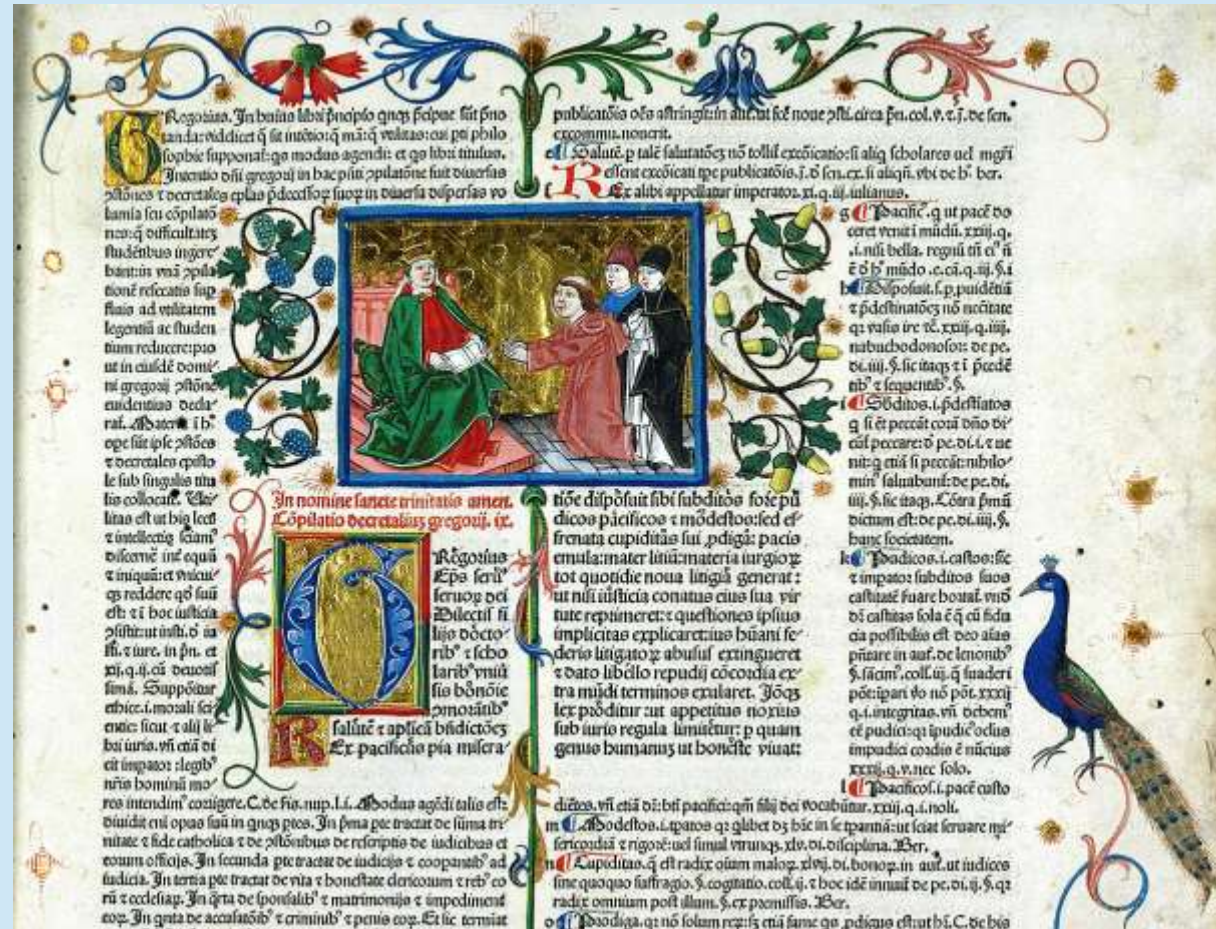 GRegorius. In huius libri p̃ncipio quinqꝫ p̃cipue sũt p̃no
tanda: videlicet q̃ sit intẽtio: q̃ mã: q̃ vtilitas: cui pti philo
sophie supponat̃: qs modus agendi: et qs libri titulus.
Intentio dñi gregorij in hac pñti ꝯpilatõne fuit diuersas
ꝯstõnes ⁊ decretales eplas p̃decessoꝝ suoꝝ in diuersa dispersas vo
lumia seu cõpilatõ
nes: q̃ difficultatẽ
studẽtibus ingere
bant: in vnã ꝯpila
tionẽ resecatis sup
fluis ad vtilitatem
legentiũ ac studen
tium reducere: pro
ut in eiusdẽ domi
ni gregorij ꝯstõne
euidentius decla
rat̃. Materia ĩ h̾
ope sũt ipse ꝯstões
⁊ decretales episto
le sub singulis titu
lis collocate. Vti
litas est ut his lectis
⁊ intellectis sciam̾
discernẽ int̾ equũ
⁊ iniquũ: et vnicui
qꝫ reddere qd̾ suũ
est: ⁊ ĩ hoc iusticia
ꝯsistit: ut insti. d̾ iu
sti. ⁊ iure. in p̃n. et
xij. q. ij. cũ deuotis
sima. Suppõitur
ethice. i. morali sci
entie: sicut ⁊ alij li
bri iuris. vñ etiã di
cit impator: legib̾
nr̃is hominũ mo
res intendim̾ corrigere. C. de his. nup. l. i. Modus agẽdi talis est:
diuidit eni opus suũ in quinqꝫ ptes. In p̃ma pte tractat de sũma tri
nitate ⁊ fide catholica ⁊ de ꝯstõnibus de rescriptis de iudicibus et
eorum officijs. In secunda pte tractat de iudicijs ⁊ coopantib̾ ad
iudicia. In tertia pte tractat de vita ⁊ honestate clericorum ⁊ reb̾ eo
rũ ⁊ ecclesiaꝝ. In q̃rta de sponsalib̾ ⁊ matrimonijs ⁊ impediment
eoꝝ. In qnta de accusatõib̾ ⁊ criminib̾ ⁊ penis eoꝝ. Et sic termiat
In nomine sancte trinitatis amen.
Cõpilatio decretaliuꝫ gregorij. ix.
GRegorius
Eps seru̾
seruoꝝ dei
Dilectis fi
lijs docto
rib̾ ⁊ scho
larib̾ vniũ
sis bonõie
ꝯmorãtib̾
salutẽ ⁊ aplicã bñdictõeꝫ
REx pacificus pia misera
tiõe disposuit sibi subditos fore pu
dicos pacificos ⁊ modestos: sed ef
frenata cupiditas sui ꝓdiga: pacis
emula: mater litiũ: materia iurgioꝝ
tot quotidie noua litigia generat:
ut nisi iusticia conatus eius sua vir
tute reprimeret: ⁊ questiones ipsius
implicitas explicaret: ius hũani fe
deris litigatoꝝ abusus extingueret
⁊ dato libello repudij cõcordia ex
tra mũdi terminos exularet. Ioqꝫ
lex proditur: ut appetitus noxius
sub iuris regula limitet̃: p quam
genus humanuꝫ ut honeste viuat:
publicatõis oẽs astringit: in aut. ut fcẽ noue ꝯsti. circa p̃n. col. v. ⁊. j. de sen.
excommu. nouerit.
e Salutẽ. p talẽ salutatõeꝫ nõ tollit̃ excõicatio: si aliq scholares uel mgr̃i
essent excõicati tpe publicatõis. j. d̾ sen. ex. si aliqñ. vbi de h̾. ber.
f REx alibi appellatur imperator. xi. q. iij. iulianus.
g Pacific̾. q ut pacẽ do
ceret venit ĩ mũdũ. xxiij. q.
.i. nisi bella. regnũ tñ ei̾ ñ
ẽ d̾ h̾ mũdo .c. cã. q. iij. §. i
h Disposuit. s. p. puidẽtiã
⁊ p̃destinatõeꝫ nõ nec̃itate
qꝛ vasis ire ⁊c̃. xxiij. q. iiij.
nabuchodonosor: de pe.
di. iiij. §. sic itaqꝫ ⁊ ĩ p̃cedẽ
tib̾ ⁊ sequentib̾. §.
i Sb̾ditos. i. p̃destiatos
q si et̃ peccãt corã dño di
cũt̃ peccare: d̾ pe. di. i. ⁊ ue
nit: q etiã si peccãt: nihilo
min̾ saluabunt̃: de pe. di.
iiij. §. sic itaqꝫ. Cõtra p̃mũ
dictum est: de pe. di. iiij. §.
hanc societatem.
k Pudicos. i. castos: sic
⁊ impator subditos suos
castitatẽ s̾uare hortat̃. vnd̾
dꝫ castitas sola ẽ q̃ cũ fidu
cia possibilis est deo aĩas
p̃ntare in aut. de lenonib̾
§. sãcim̾. coll. iij. q̃ suaderi
põt: ipari v̾o nõ põt. xxxij
q. i. integritas. vñ debem̾
ẽẽ pudici: qꝛ ĩpudic̾ oclus
impudici cordis ẽ nũcius
xxxij. q. v. nec solo.
l Pacificos. i. pacẽ custo
diẽtes. vñ etiã dꝫ: bt̃i pacifici: qm̃ filij dei vocabũtur. xxiij. q. i. noli.
m Modestos. i. tpatos qꝛ qlibet dꝫ h̃ie in se tpantiã: ut sciat seruare mi
sericordiã ⁊ rigorẽ: uel simul vtrunqꝫ. xlv. di. disciplina. Ber.
n Cupiditas. q̃ est radix oĩum maloꝝ. xlvij. di. bonoꝝ. in aut. ut iudices
sine quoquo suffragio. §. cogitatio. coll. ij. ⁊ hoc idẽ innuit̃ de pe. di. ij. §. qꝛ
radix omnium post illum. §. ex premissis. Ber.
o Prodiga. qꝛ nõ solum reꝝ: sꝫ etiã fame qs ꝓdigus est: ut hi. C. de his